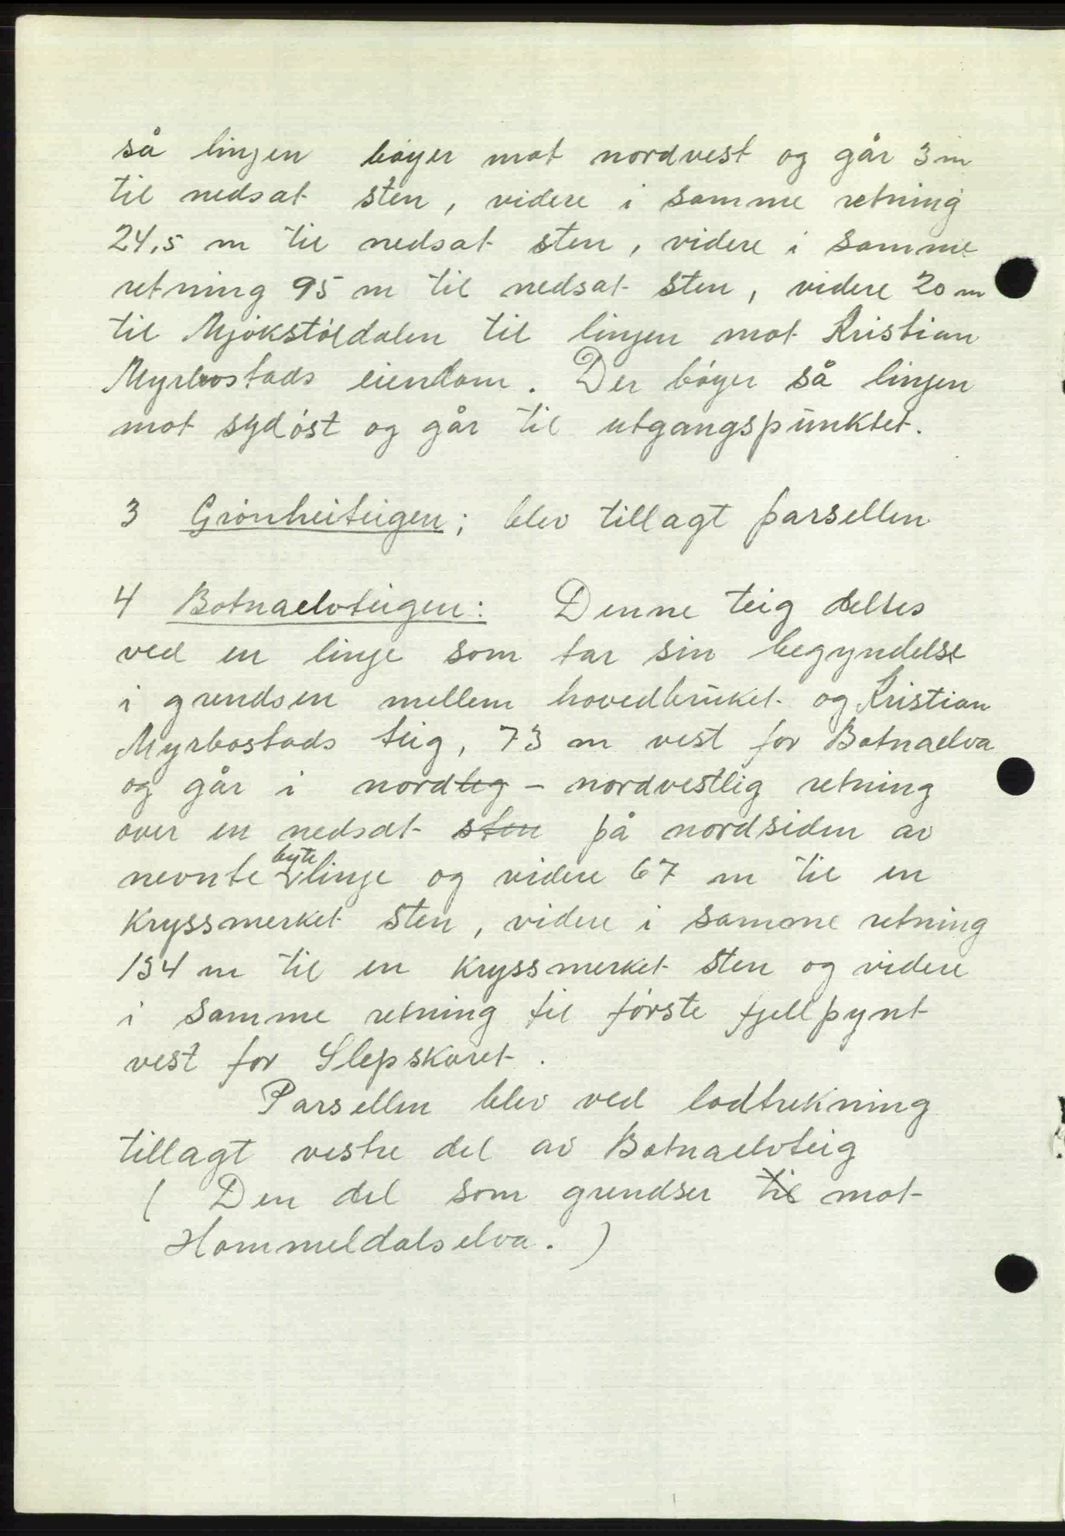 så linjen bøyer mot nordvest og går 3 m
til nedsat sten, videre i samme retning
24,5 m til nedsat sten, videre i samme
retning 95 m til nedsat sten, videre 20 m
til Mjøkstøldalen til linjen mot Kristian
Myrbostads eiendom. Der bøyer så linjen
mot sydøst og går til utgangspunktet.
3 Grønheiteigen; blev tillagt parsellen
4 Botnaelvteigen: Denne teig deltes
ved en linje som tar sin begyndelse
i grendsen mellem hovedbruket og Kristian
Myrbostads teig, 73 m vest for Botnaelva
og går i nordleg - nordvestlig retning
over en nedsat sten på nordsiden av
nevnte byte linje og videre 67 m til en
kryssmerket sten, videre i samme retning
134 m til en kryssmerket sten og videre
i samme retning til første fjellpynt
vest for Slepskaret.
Parsellen blev ved lodtrekning
tillagt vestre del av Botnaelvteig
( Den del som grendser til mot
Hammeldalselva. )